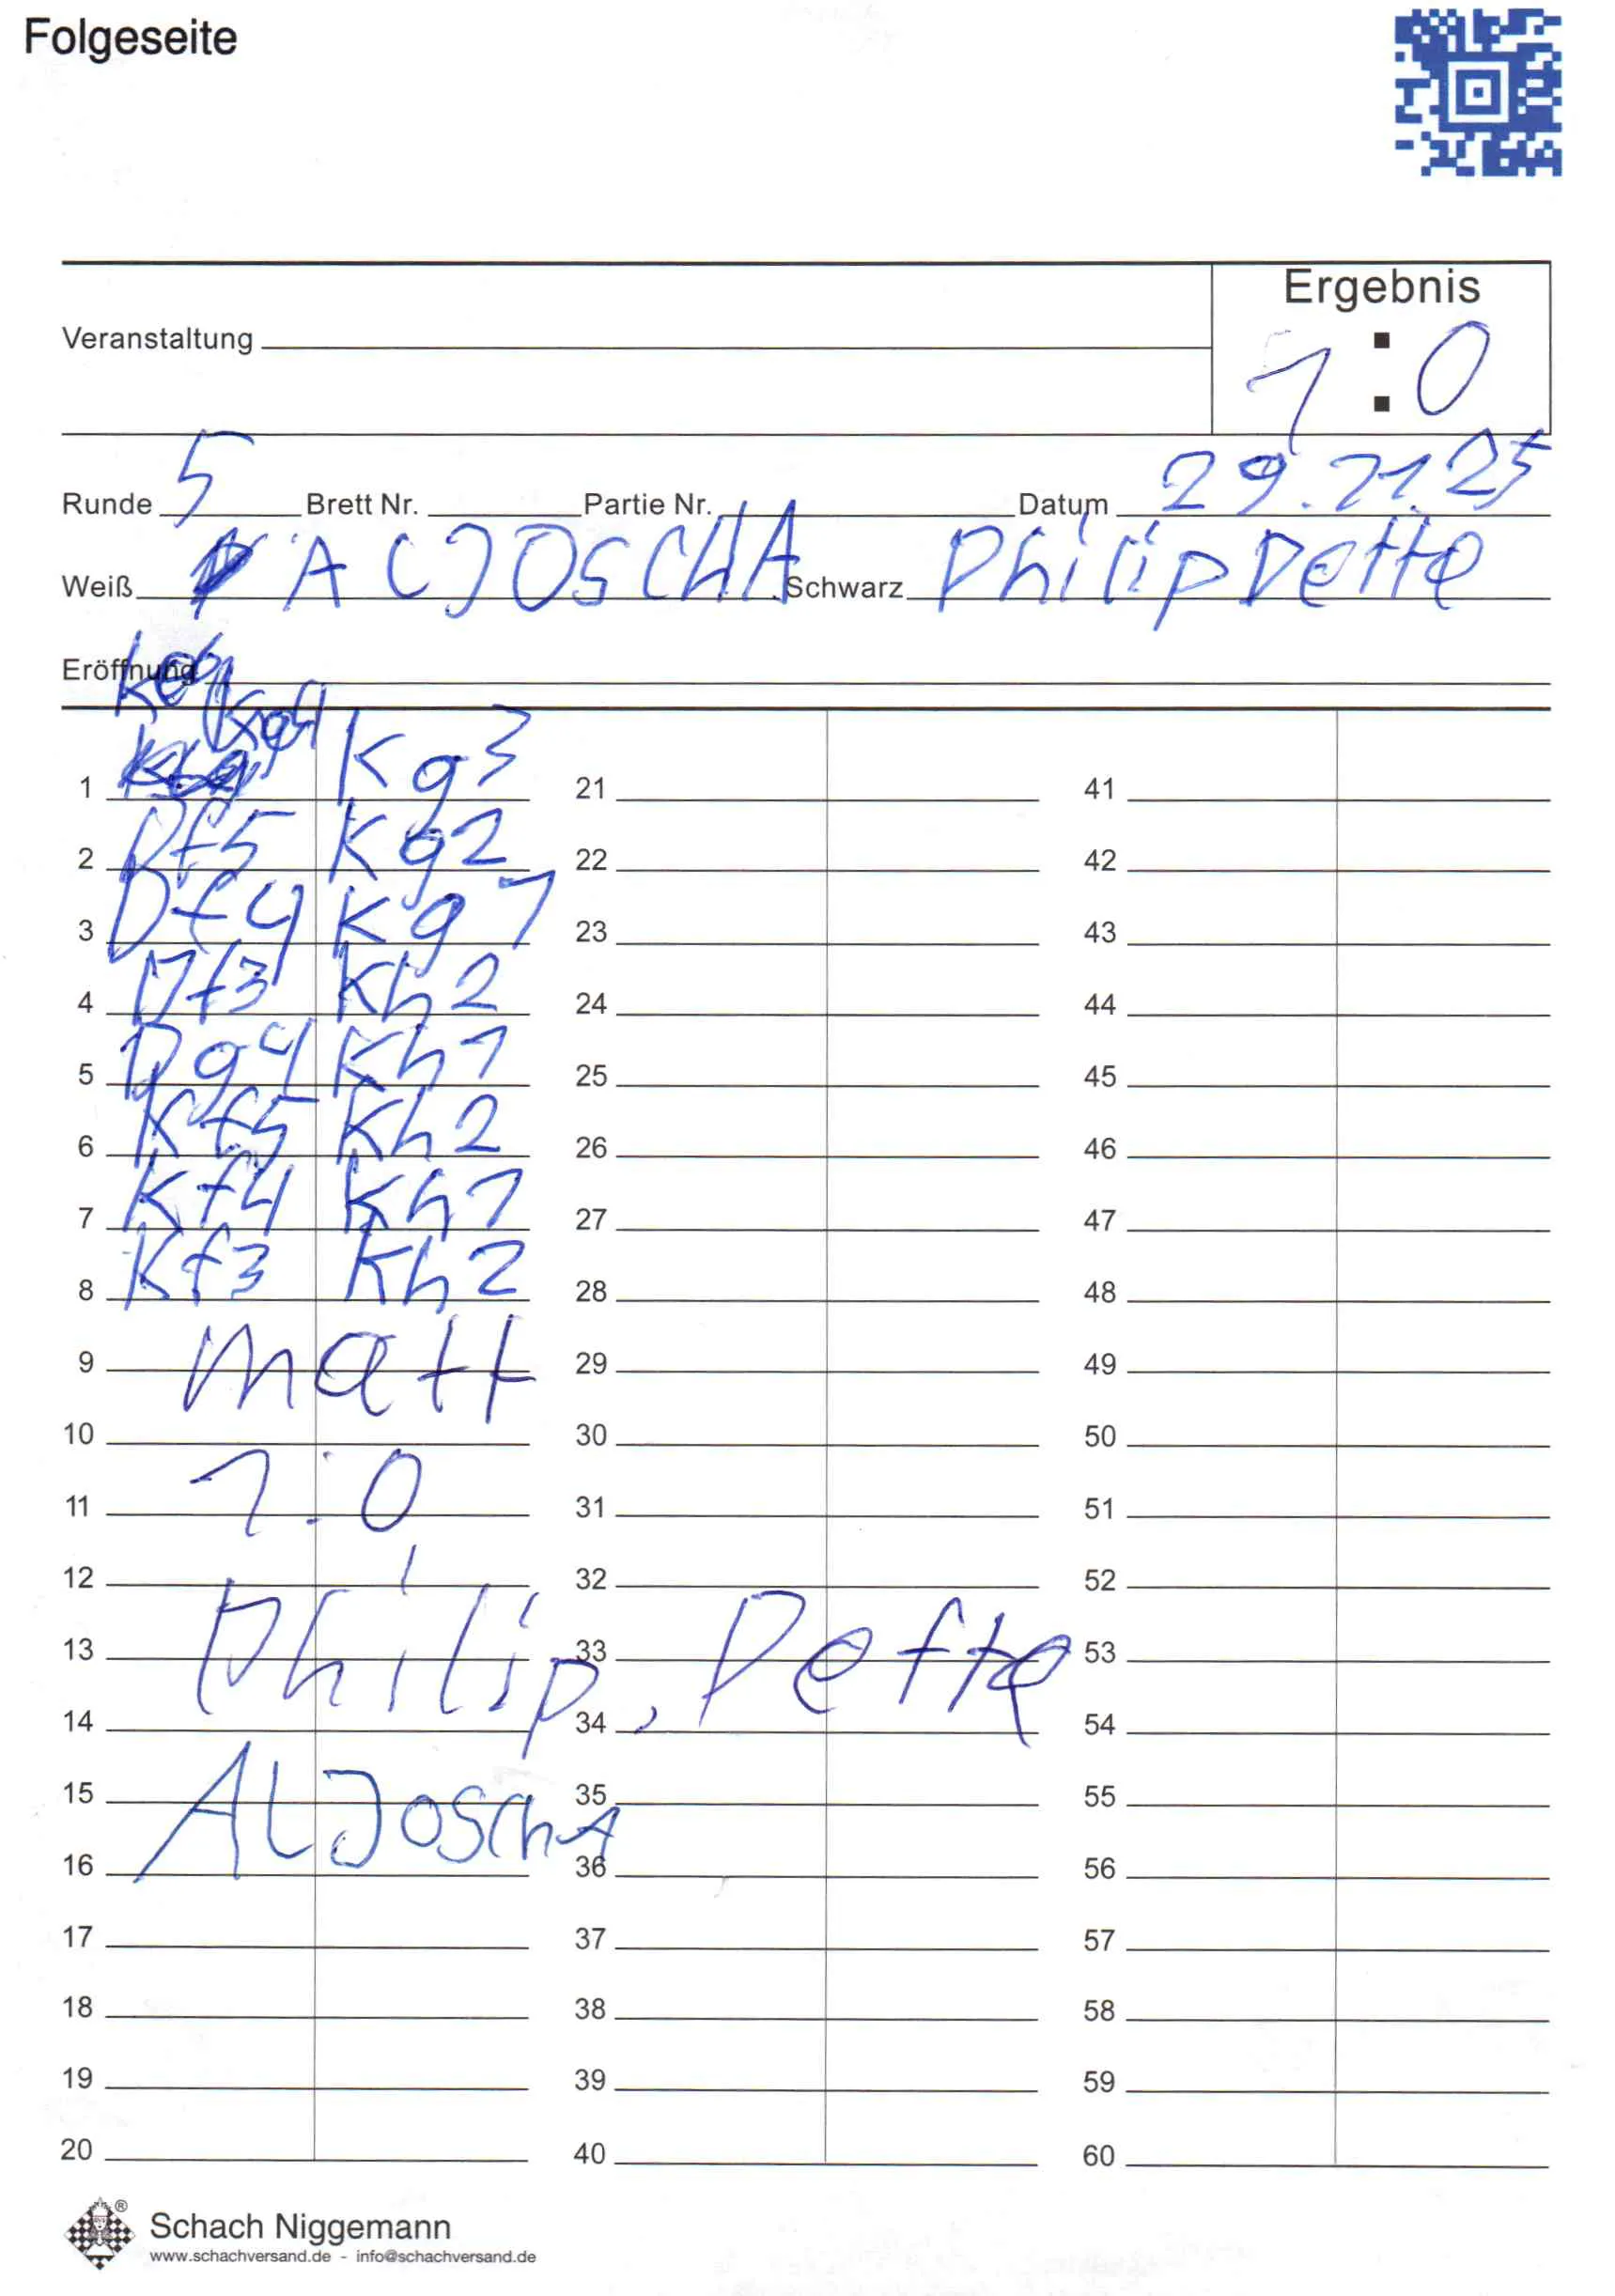 Folgeseite
Ergebnis
Veranstaltung
1:0
Runde 5 Brett Nr. Partie Nr. Datum 29.11.25
Weiß ALJOSCHA Schwarz Philip Dette
Eröffnung
1 Kg3 21 41
2 Df5 Kg2 22 42
3 Df4 Kg1 23 43
4 Df3 Kh2 24 44
5 Dg4 Kh1 25 45
6 Kf5 Kh2 26 46
7 Kf4 Kh1 27 47
8 Kf3 Kh2 28 48
9 matt 29 49
10 30 50
11 1:0 31 51
12 32 52
13 Philip, Dette 33 53
14 34 54
15 ALJoschA 35 55
16 36 56
17 37 57
18 38 58
19 39 59
20 40 60
®
Schach Niggemann
www.schachversand.de - info@schachversand.de